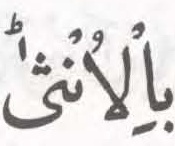 بِاْلاُنْثٰىؕ